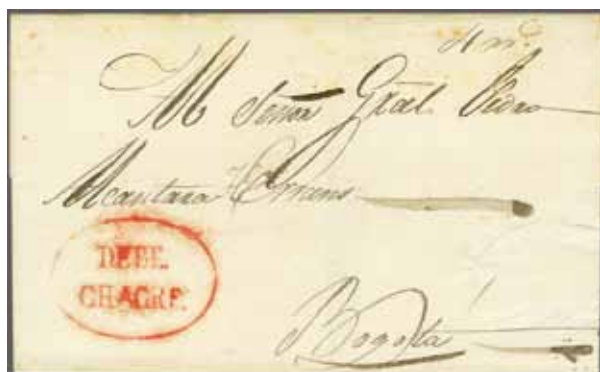 Al Señor Gral. Pedro
Alcantara Herran
DEBE.
CHAGRE.
Bogotá